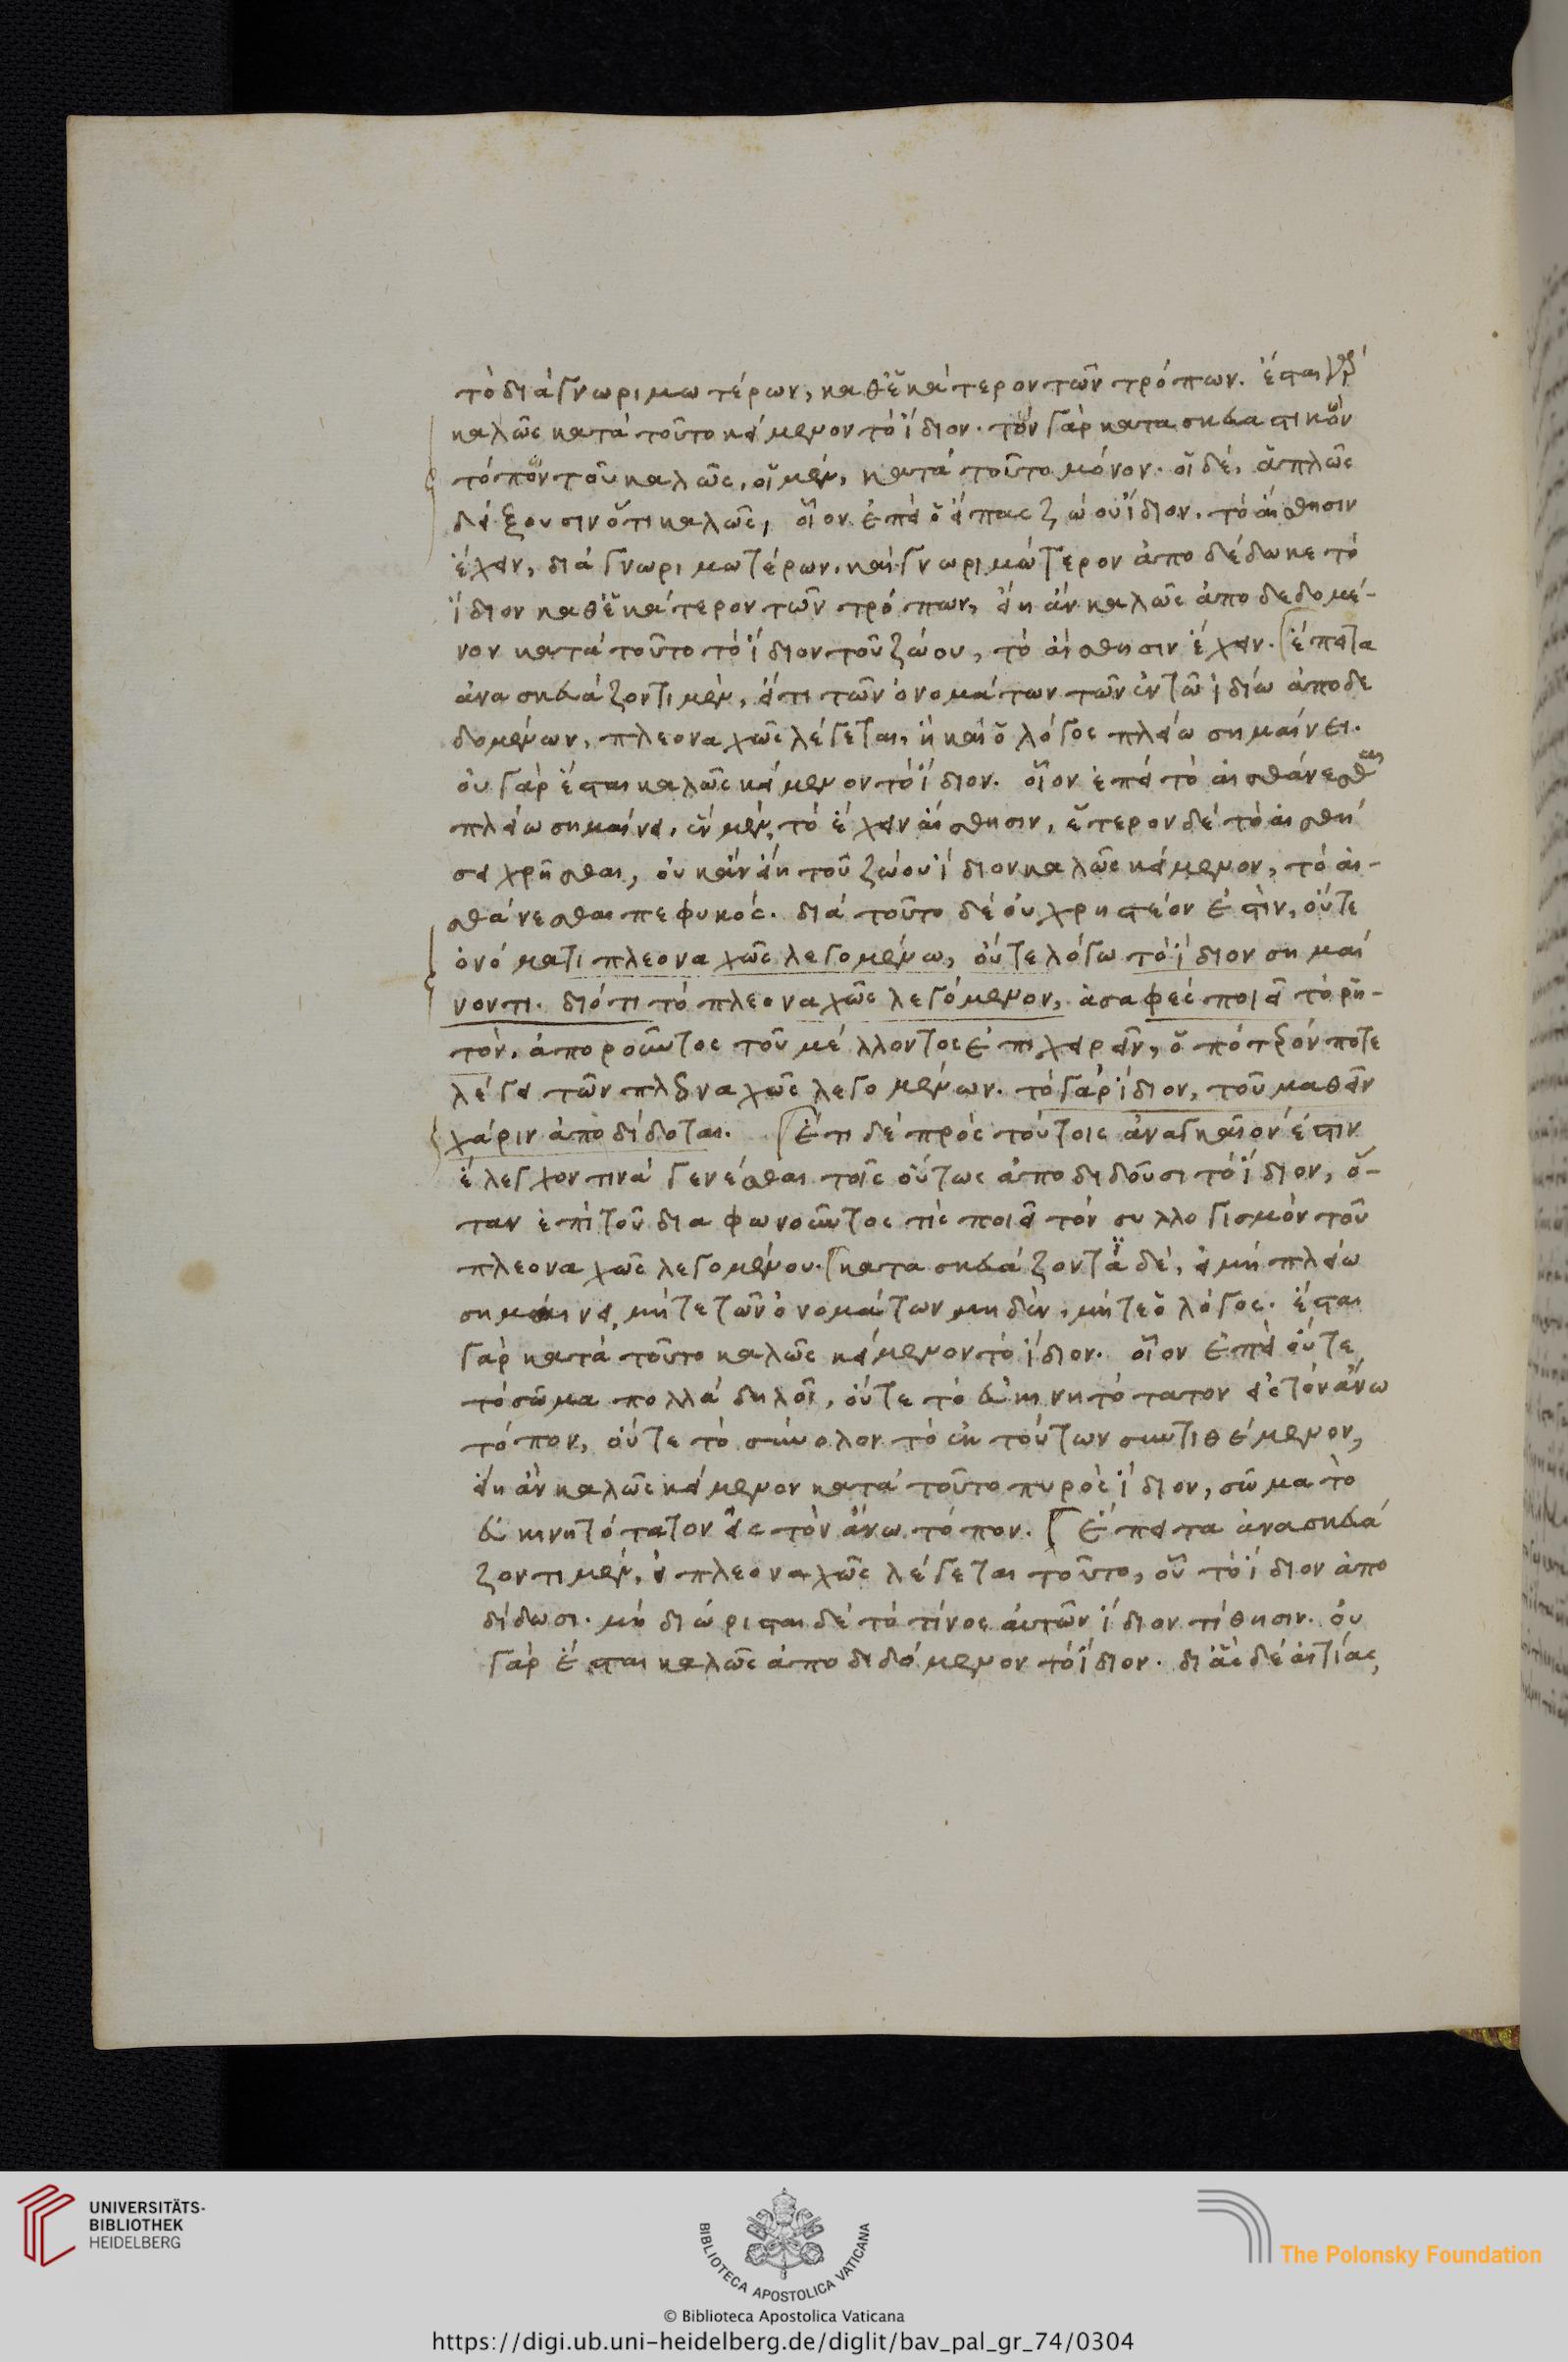 τὸ διὰ γνωριμωτέρων, καθ' ἑκάτερον τῶν τρόπων. ἔσται γὰρ
καλῶς κατὰ τοῦτο κείμενον τὸ ἴδιον. τὸν γὰρ κατασκευαστικὸν
τόπον τοῦ καλῶς, οἱ μὲν, κατὰ τοῦτο μόνον. οἱ δὲ, ἁπλῶς
δείξουσιν ὅτι καλῶς, οἷον ἐπεὶ ὁ εἴπας ζώου ἴδιον. τὸ αἴσθησιν
ἔχειν, διὰ γνωριμωτέρων, καὶ γνωριμώτερον ἀποδέδωκε τὸ
ἴδιον καθ' ἑκάτερον τῶν τρόπων, εἴη ἂν καλῶς ἀποδεδομέ-
νον κατὰ τοῦτο τὸ ἴδιον τοῦ ζώου, τὸ αἴσθησιν ἔχειν. ἔπειτα
ἀνασκευάζοντι μὲν, εἴ τι τῶν ὀνομάτων τῶν ἐν τῶ ἰδίω ἀποδε
δομένων, πλεοναχῶς λέγεται, ἢ καὶ ὁ λόγος πλείω σημαίνει.
οὐ γὰρ ἔσται καλῶς κείμενον τὸ ἴδιον. οἷον ἐπεὶ τὸ αἰσθάνεσθαι
πλείω σημαίνει, ἓν μὲν, τὸ ἔχειν αἴσθησιν, ἕτερον δὲ τὸ αἰσθή
σει χρῆσθαι, οὐκ ἂν εἴη τοῦ ζώου ἴδιον καλῶς κείμενον, τὸ αἰ-
σθάνεσθαι πεφυκός. διὰ τοῦτο δὲ οὐ χρηστέον ἐστὶν, οὔτε
ὀνόματι πλεοναχῶς λεγομένω, οὔτε λόγω τὸ ἴδιον σημαί
νοντι. διότι τὸ πλεοναχῶς λεγόμενον, ἀσαφὲς ποιεῖ τὸ ῥη-
τόν. ἀποροῦντος τοῦ μέλλοντος ἐπιχειρεῖν, ὁπότερόν ποτε
λέγει τῶν πλεοναχῶς λεγομένων. τὸ γὰρ ἴδιον, τοῦ μαθεῖν
χάριν ἀποδίδοται. Ἔτι δὲ πρὸς τούτοις ἀναγκαῖον ἐστιν
ἔλεγχον τινὰ γενέσθαι τοῖς οὕτως ἀποδιδοῦσι τὸ ἴδιον, ὅ-
ταν ἐπὶ τοῦ διαφωνοῦντος τὶς ποιεῖ τὸν συλλογισμὸν τοῦ
πλεοναχῶς λεγομένου. κατασκευάζοντα δὲ, εἰ μὴ πλείω
σημαίνει, μήτε τῶν ὀνομάτων μηδὲν, μήτε ὁ λόγος. ἔσται
γὰρ κατὰ τοῦτο καλῶς κείμενον τὸ ἴδιον. οἷον ἐπεὶ οὔτε
τὸ σῶμα πολλὰ δηλοῖ, οὔτε τὸ εὐκινητότατον εἰς τὸν ἄνω
τόπον, οὔτε τὸ σύνολον τὸ ἐκ τούτων συντιθέμενον,
εἴη ἂν καλῶς κείμενον κατὰ τοῦτο πυρὸς ἴδιον, σῶμα τὸ
εὐκινητότατον εἰς τὸν ἄνω τόπον. Ἔπειτα ἀνασκευά
ζοντι μὲν, εἰ πλεοναχῶς λέγεται τοῦτο, οὗ τὸ ἴδιον ἀπο
δίδωσι. μὴ διώρισται δὲ τὸ τίνος αὐτῶν ἴδιον τίθησιν. οὐ
γὰρ ἔσται καλῶς ἀποδιδόμενον τὸ ἴδιον. δι' ἃς δὲ αἰτίας,
UNIVERSITÄTS-
BIBLIOTHEK
HEIDELBERG
BIBLIOTECA APOSTOLICA VATICANA
The Polonsky Foundation
© Biblioteca Apostolica Vaticana
https://digi.ub.uni-heidelberg.de/diglit/bav_pal_gr_74/0304